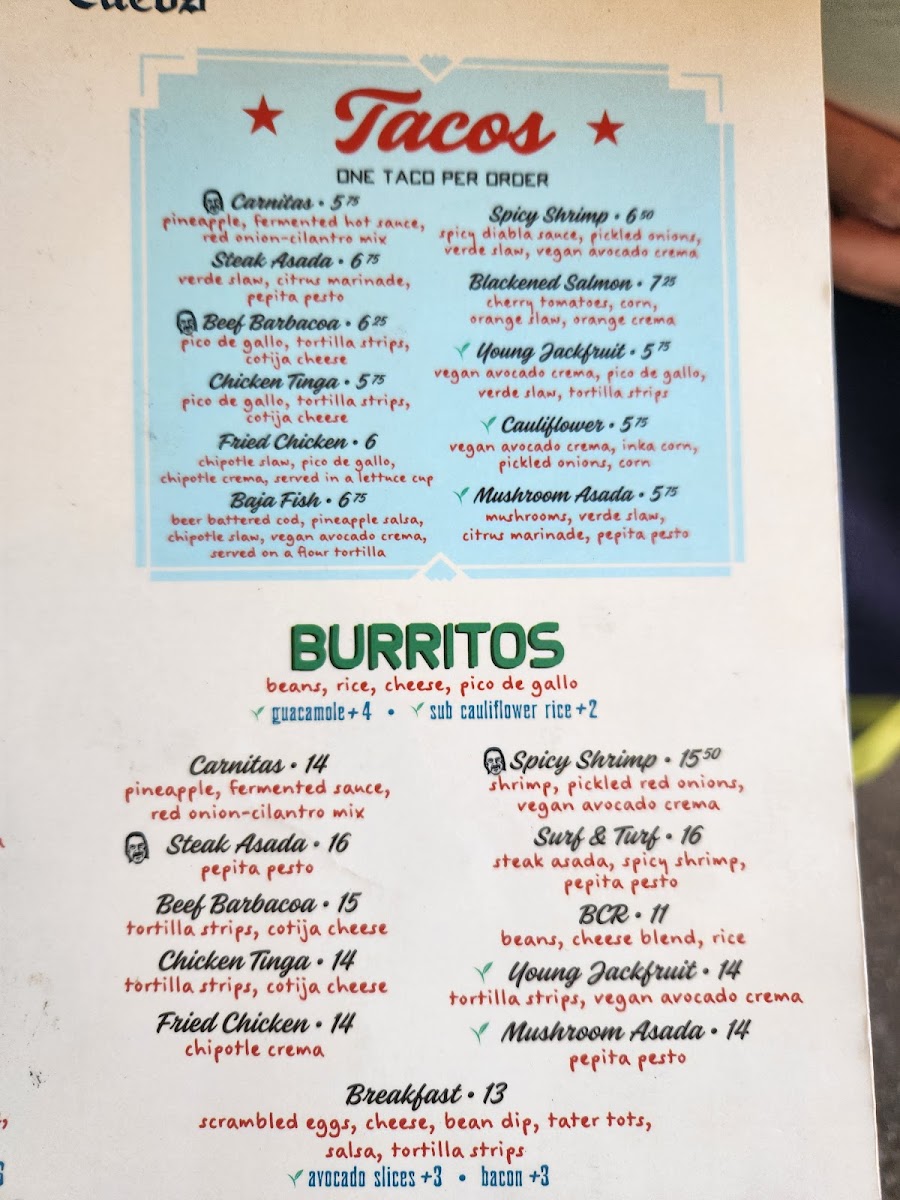 Tacos
ONE TACO PER ORDER
Carnitas • 5 75
pineapple, fermented hot sauce,
red onion-cilantro mix
Steak Asada • 6 75
verde slaw, citrus marinade,
pepita pesto
Beef Barbacoa • 6 25
pico de gallo, tortilla strips,
cotija cheese
Chicken Tinga • 5 75
pico de gallo, tortilla strips,
cotija cheese
Fried Chicken • 6
chipotle slaw, pico de gallo,
chipotle crema, served in a lettuce cup
Baja Fish • 6 75
beer battered cod, pineapple salsa,
chipotle slaw, vegan avocado crema,
served on a flour tortilla
Spicy Shrimp • 6 50
spicy diabla sauce, pickled onions,
verde slaw, vegan avocado crema
Blackened Salmon • 7 25
cherry tomatoes, corn,
orange slaw, orange crema
Young Jackfruit • 5 75
vegan avocado crema, pico de gallo,
verde slaw, tortilla strips
Cauliflower • 5 75
vegan avocado crema, inka corn,
pickled onions, corn
Mushroom Asada • 5 75
mushrooms, verde slaw,
citrus marinade, pepita pesto
BURRITOS
beans, rice, cheese, pico de gallo
guacamole +4 • sub cauliflower rice +2
Carnitas • 14
pineapple, fermented sauce,
red onion-cilantro mix
Steak Asada • 16
pepita pesto
Beef Barbacoa • 15
tortilla strips, cotija cheese
Chicken Tinga • 14
tortilla strips, cotija cheese
Fried Chicken • 14
chipotle crema
Spicy Shrimp • 15 50
shrimp, pickled red onions,
vegan avocado crema
Surf & Turf • 16
steak asada, spicy shrimp,
pepita pesto
BCR • 11
beans, cheese blend, rice
Young Jackfruit • 14
tortilla strips, vegan avocado crema
Mushroom Asada • 14
pepita pesto
Breakfast • 13
scrambled eggs, cheese, bean dip, tater tots,
salsa, tortilla strips
avocado slices +3 • bacon +3